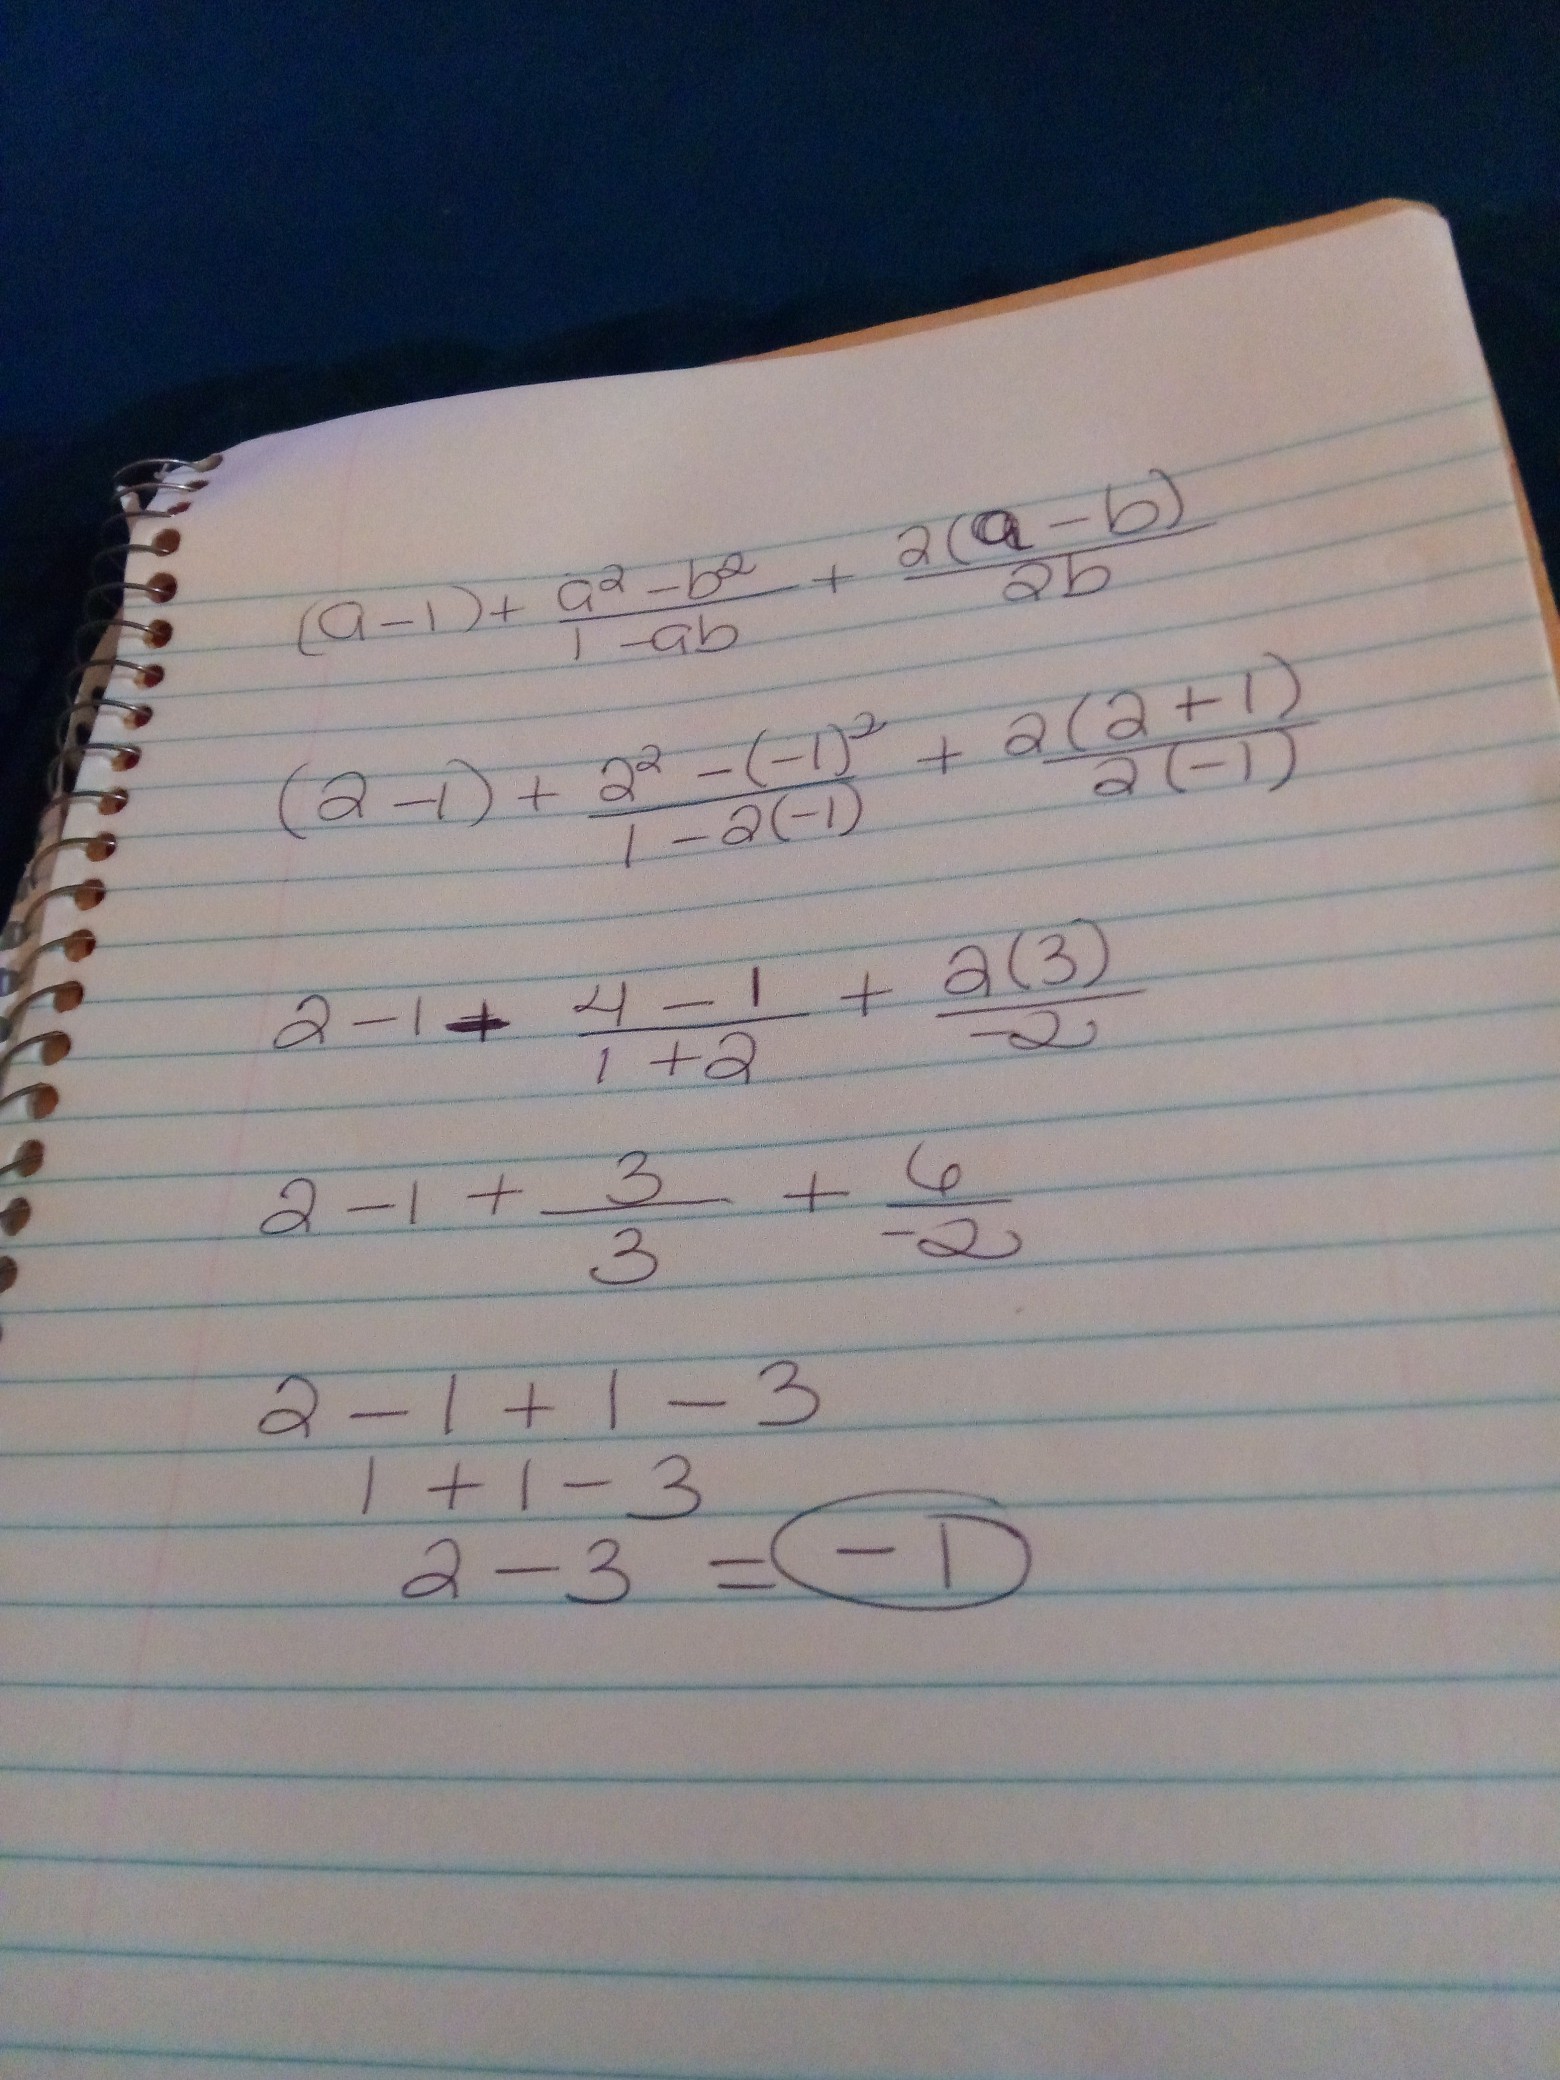 (a-1)+ a²-b²/1-ab + 2(a-b)/2b
(2-1)+ 2²-(-1)²/1-2(-1) + 2(2+1)/2(-1)
2-1+ 4-1/1+2 + 2(3)/-2
2-1+ 3/3 + 6/-2
2-1+1-3
1+1-3
2-3 = -1